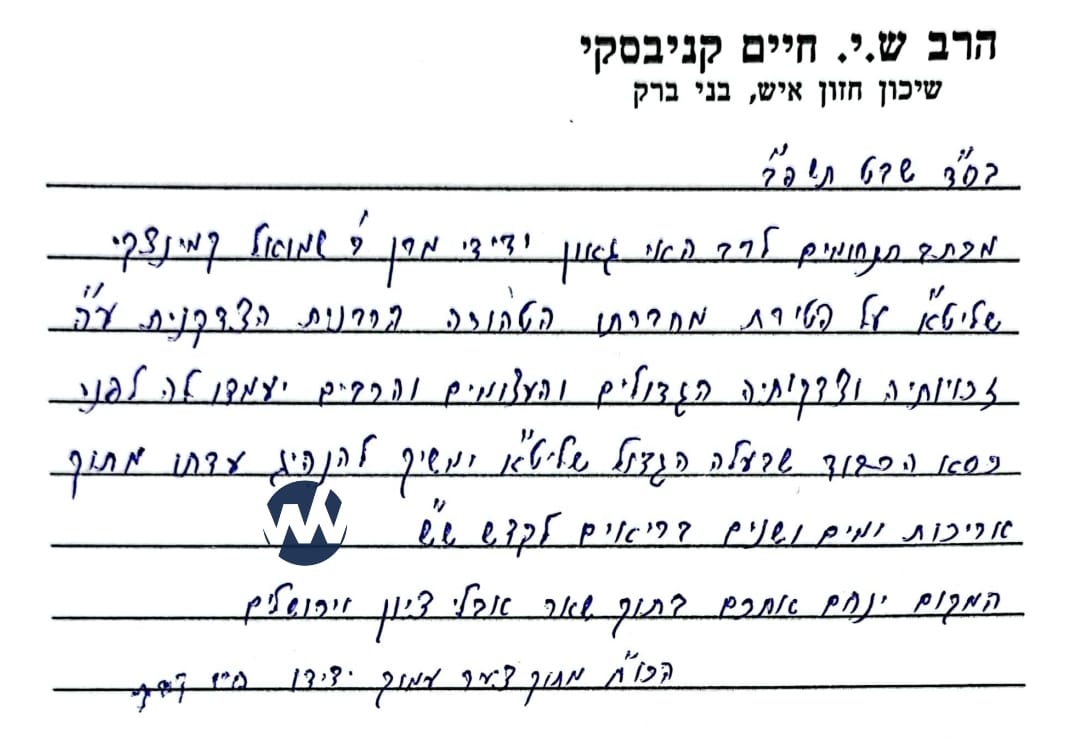 הרב ש.י. חיים קניבסקי
שיכון חזון איש, בני ברק
בס"ד שבט תשפ"ב
מכתב תנחומים לרב האי גאון ידידי מרן ר' שמואל קמינצקי
שליט"א על פטירת מחברתו הטהורה הרבנית הצדקנית ע"ה
זכויותיה וצדקותיה הגדולים והעצומים והרבים יעמדו לה לפני
כסא הכבוד שבעלה הגדול שליט"א ימשיך להנהיג עדתו מתוך
אריכות ימים ושנים בריאים לקדש ש"ש
המקום ינחם אתכם בתוך שאר אבלי ציון וירושלים
הכו"ח מתוך צער עמוק ידידו